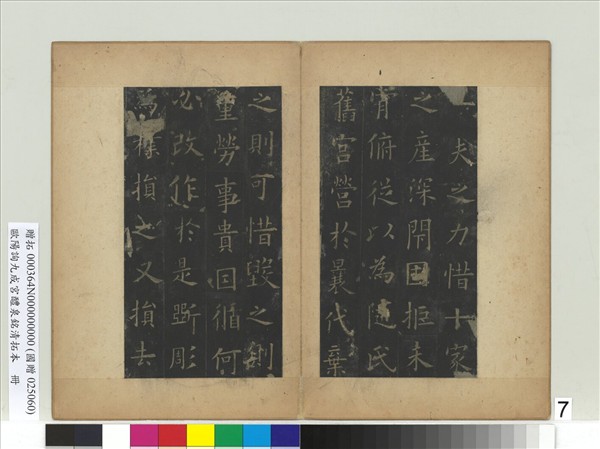 一夫之力惜十家
之產深閇固拒未
肯俯從以為隨氏
舊宮營於曩代棄
之則可惜毀之則
重勞事貴因循何
必改作於是斲彫
為樸損之又損去
贈拓 000364N000000000 (國贈 025060)
歐陽詢九成宮醴泉銘清拓本 冊
7